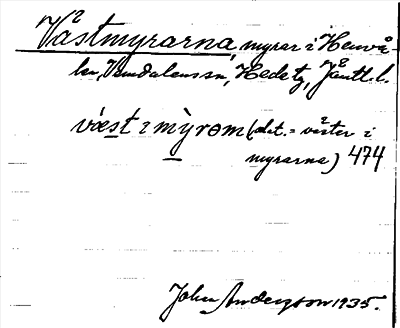 Västmyrarna, myrar i Henvå-
len, Vemdalens sn, Hede tg, Jämtl. l.
væst i mỳrom (dat. = väster i
myrarna) 474
John Anderson 1935.